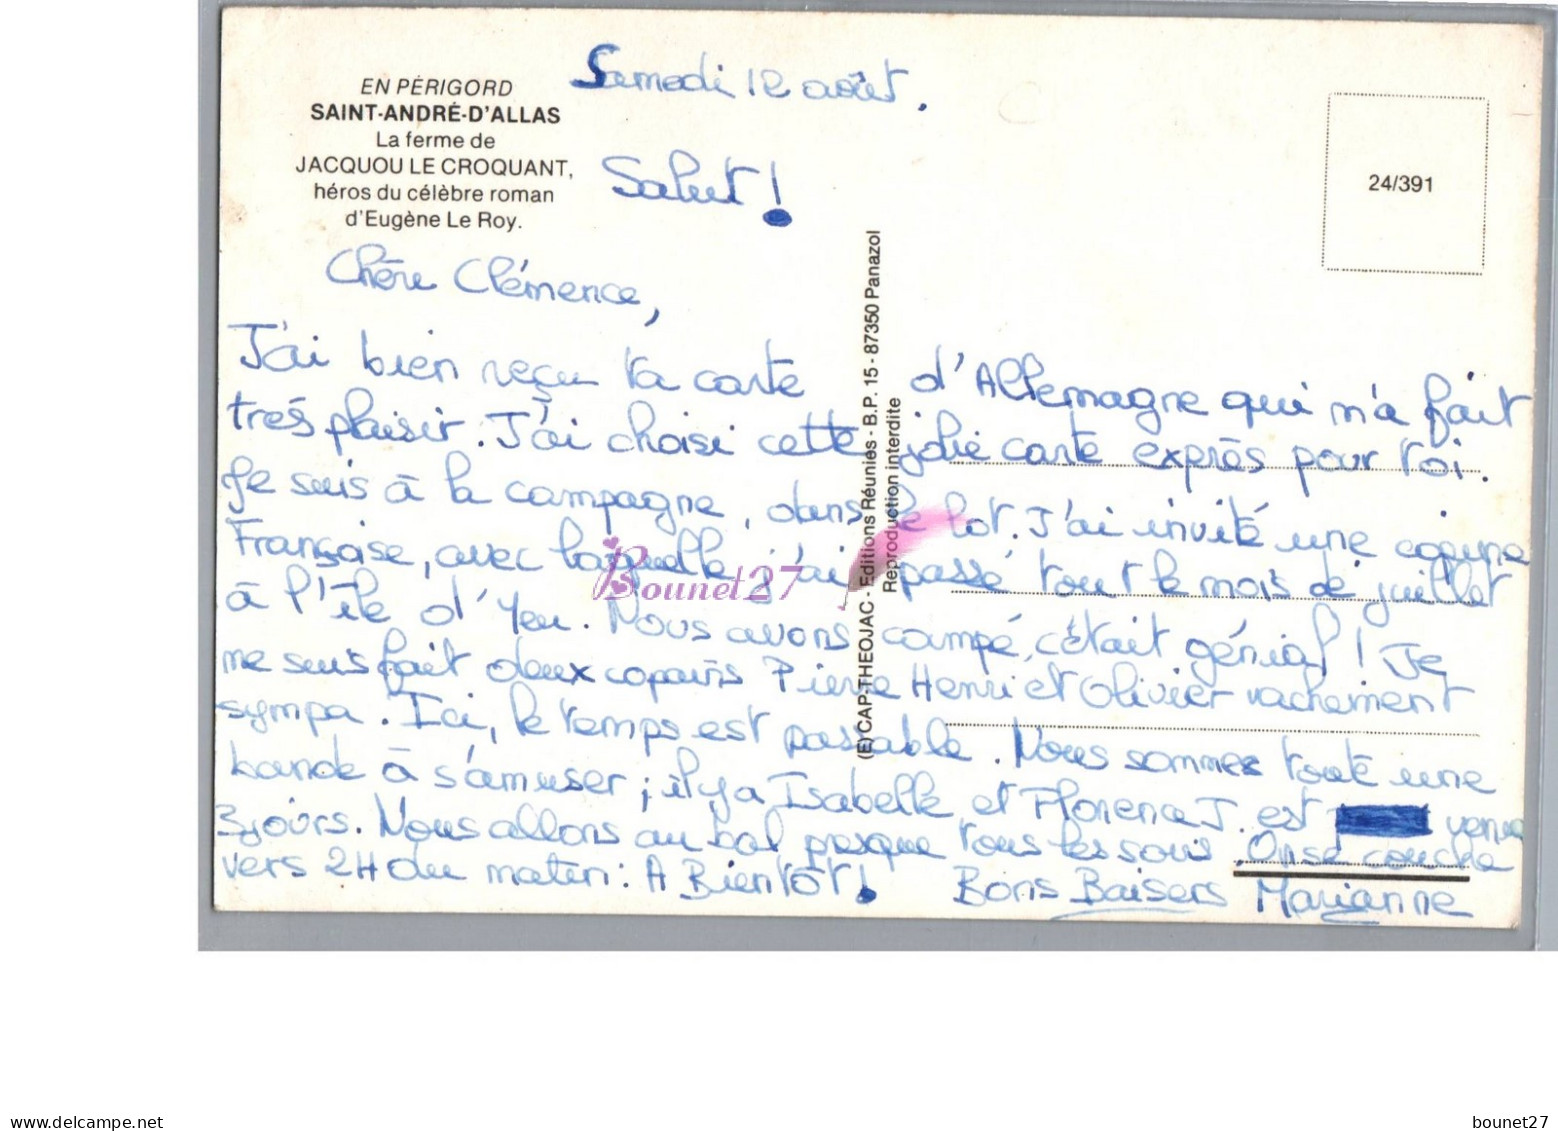 Samedi 12 août.
EN PÉRIGORD
SAINT-ANDRÉ-D'ALLAS
La ferme de
JACQUOU LE CROQUANT,
héros du célèbre roman
d'Eugène Le Roy.
24/391
Salut !
Chère Clémence,
J'ai bien reçu ta carte d'Allemagne qui m'a fait
très plaisir. J'ai choisi cette jolie carte exprès pour toi.
Je suis à la campagne, dans le lot. J'ai invité une copine
Française, avec laquelle j'ai passé tout le mois de juillet
à l'île d'Yeu. Nous avons campé, c'était génial ! Je
me suis fait deux copains Pierre Henri et Olivier vachement
sympa. Ici, le temps est passable. Nous sommes toute une
bande à s'amuser ; il y a Isabelle et Florence J. est venue
3 jours. Nous allons au bal presque tous les soirs On se couche
vers 2H du matin : A Bientôt ! Bons Baisers Marianne
(E) CAP-THEOJAC - Editions Réunies - B.P. 15 - 87350 Panazol
Reproduction interdite
Bounet27
www.delcampe.net
bounet27